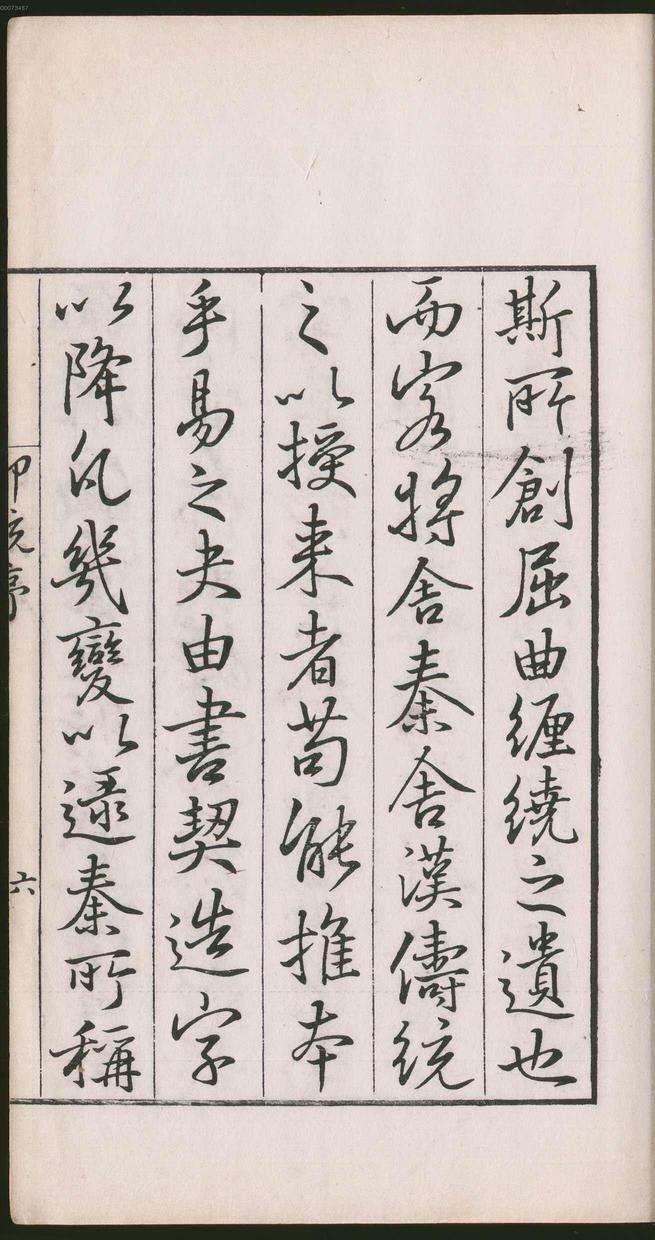 斯所創屈曲纏繞之遺也
而客將舍秦舍漢儔統
之以授来者苟能推本
乎易之夬由書契造字
以降凡幾變以逯秦所稱
印統序
六
00073467